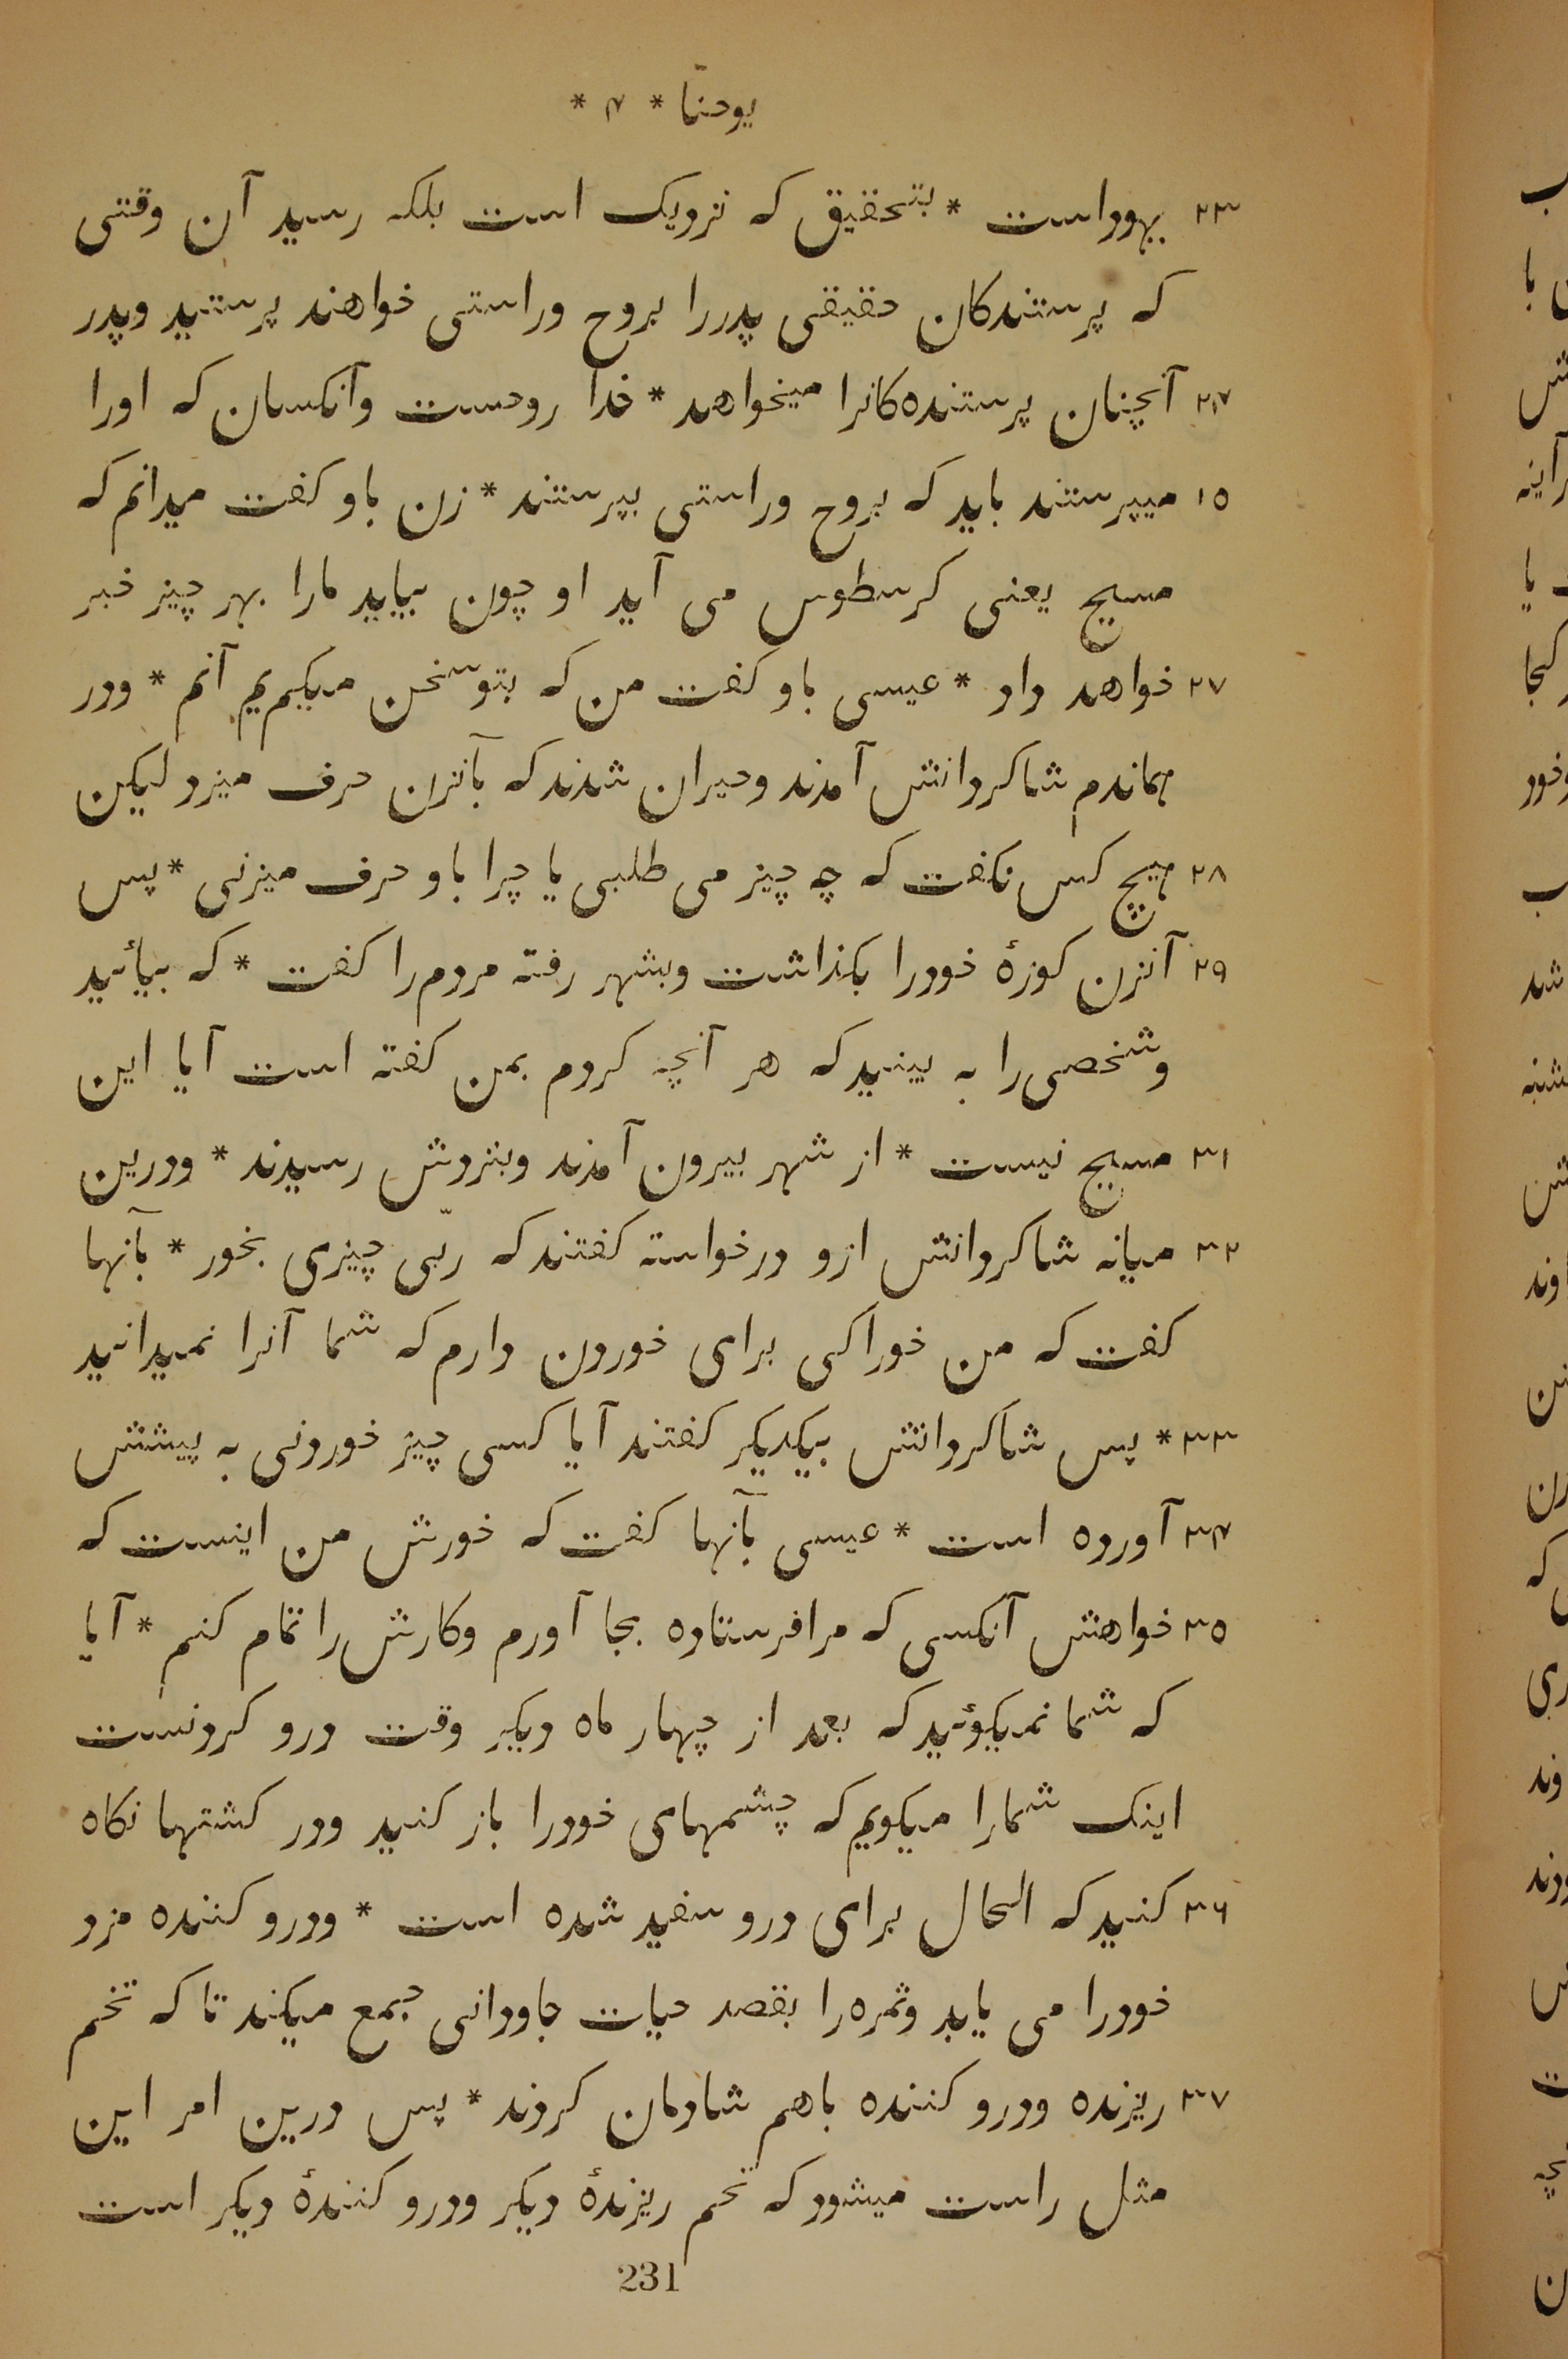 یوحنّا * ۴ *
۲۳ یهوداست * بتحقیق که نزدیک است بلکه رسید آن وقتی
که پرستندکان حقیقی پدررا بروح وراستی خواهند پرستید وپدر
۲۴ آنچنان پرستنده‌کانرا میخواهد * خدا روحست وآنکسان که اورا
۱۵ میپرستند باید که بروح وراستی بپرستند * زن باو کفت میدانم که
مسیح یعنی کرسطوس می آید او چون بیاید مارا بهر چیز خبر
۲۷ خواهد داد * عیسی باو کفت من که بتو سخن میکویم آنم * ودر
هماندم شاکردانش آمدند وحیران شدند که بآنزن حرف میزد لیکن
۲۸ هیچ کس نکفت که چه چیز می طلبی یا چرا باو حرف میزنی * پس
۲۹ آنزن کوزهٔ خودرا بکذاشت وبشهر رفته مردم‌را کفت * که بیائید
وشخصی‌را به بینید که هر آنچه کردم بمن کفته است آیا این
۳۱ مسیح نیست * از شهر بیرون آمدند وبنزدش رسیدند * ودرین
۳۲ میانه شاکردانش ازو درخواسته کفتند که ربّی چیزی بخور * بآنها
کفت که من خوراکی برای خوردن دارم که شما آنرا نمیدانید
۳۳ * پس شاکردانش بیکدیکر کفتند آیا کسی چیز خوردنی به پیشش
۳۴ آورده است * عیسی بآنها کفت که خورش من اینست که
۳۵ خواهش آنکسی که مرا فرستاده بجا آورم وکارش‌را تمام کنم * آیا
که شما نمیکوئید که بعد از چهار ماه دیکر وقت درو کردنست
اینک شمارا میکویم که چشمهای خودرا باز کنید ودر کشتها نکاه
۳۶ کنید که الحال برای درو سفید شده است * ودرو کننده مزد
خودرا می یابد وثمره‌را بقصد حیات جاودانی جمع میکند تا که تخم
۳۷ ریزنده ودرو کننده باهم شادمان کردند * پس درین امر این
مثل راست میشود که تخم ریزندهٔ دیکر ودرو کنندهٔ دیکر است
231